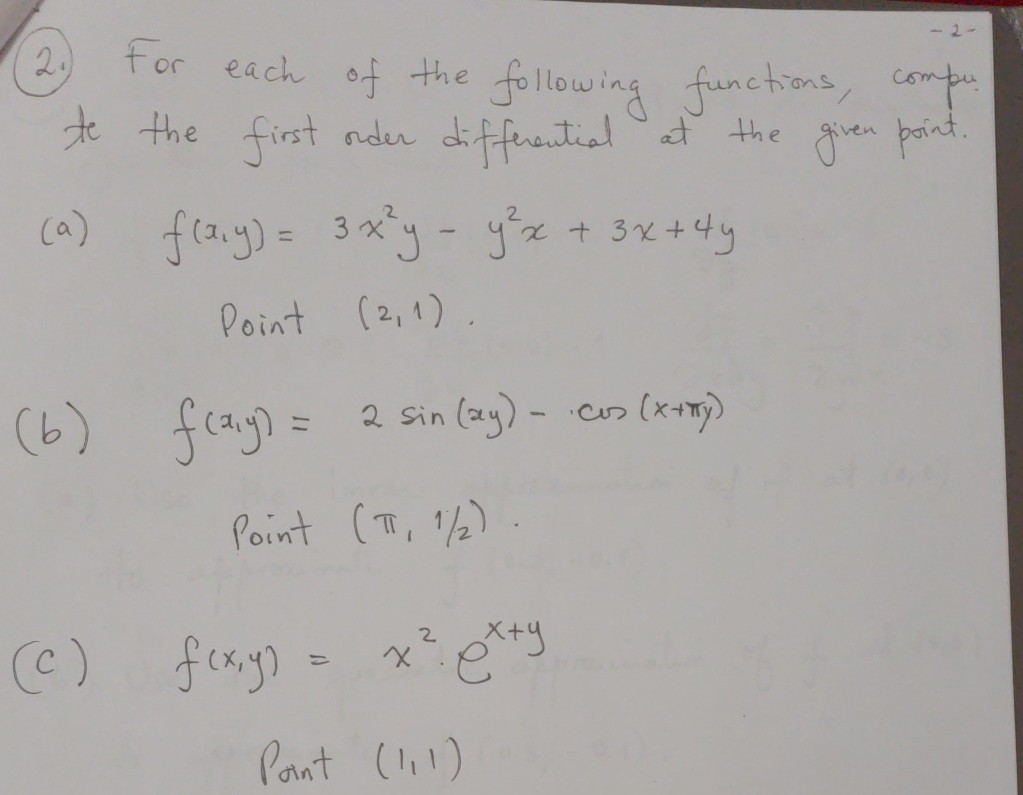 - 2 -
2. For each of the following functions, compu
te the first order differential at the given point.
(a) f(x,y) = 3x²y - y²x + 3x + 4y
Point (2,1).
(b) f(x,y) = 2 sin(xy) - cos(x+πy)
Point (π, 1/2).
(c) f(x,y) = x². e^{x+y}
Point (1,1)